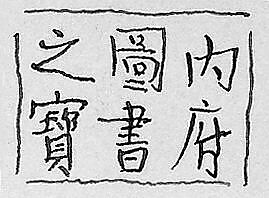 內府
圖書
之寶